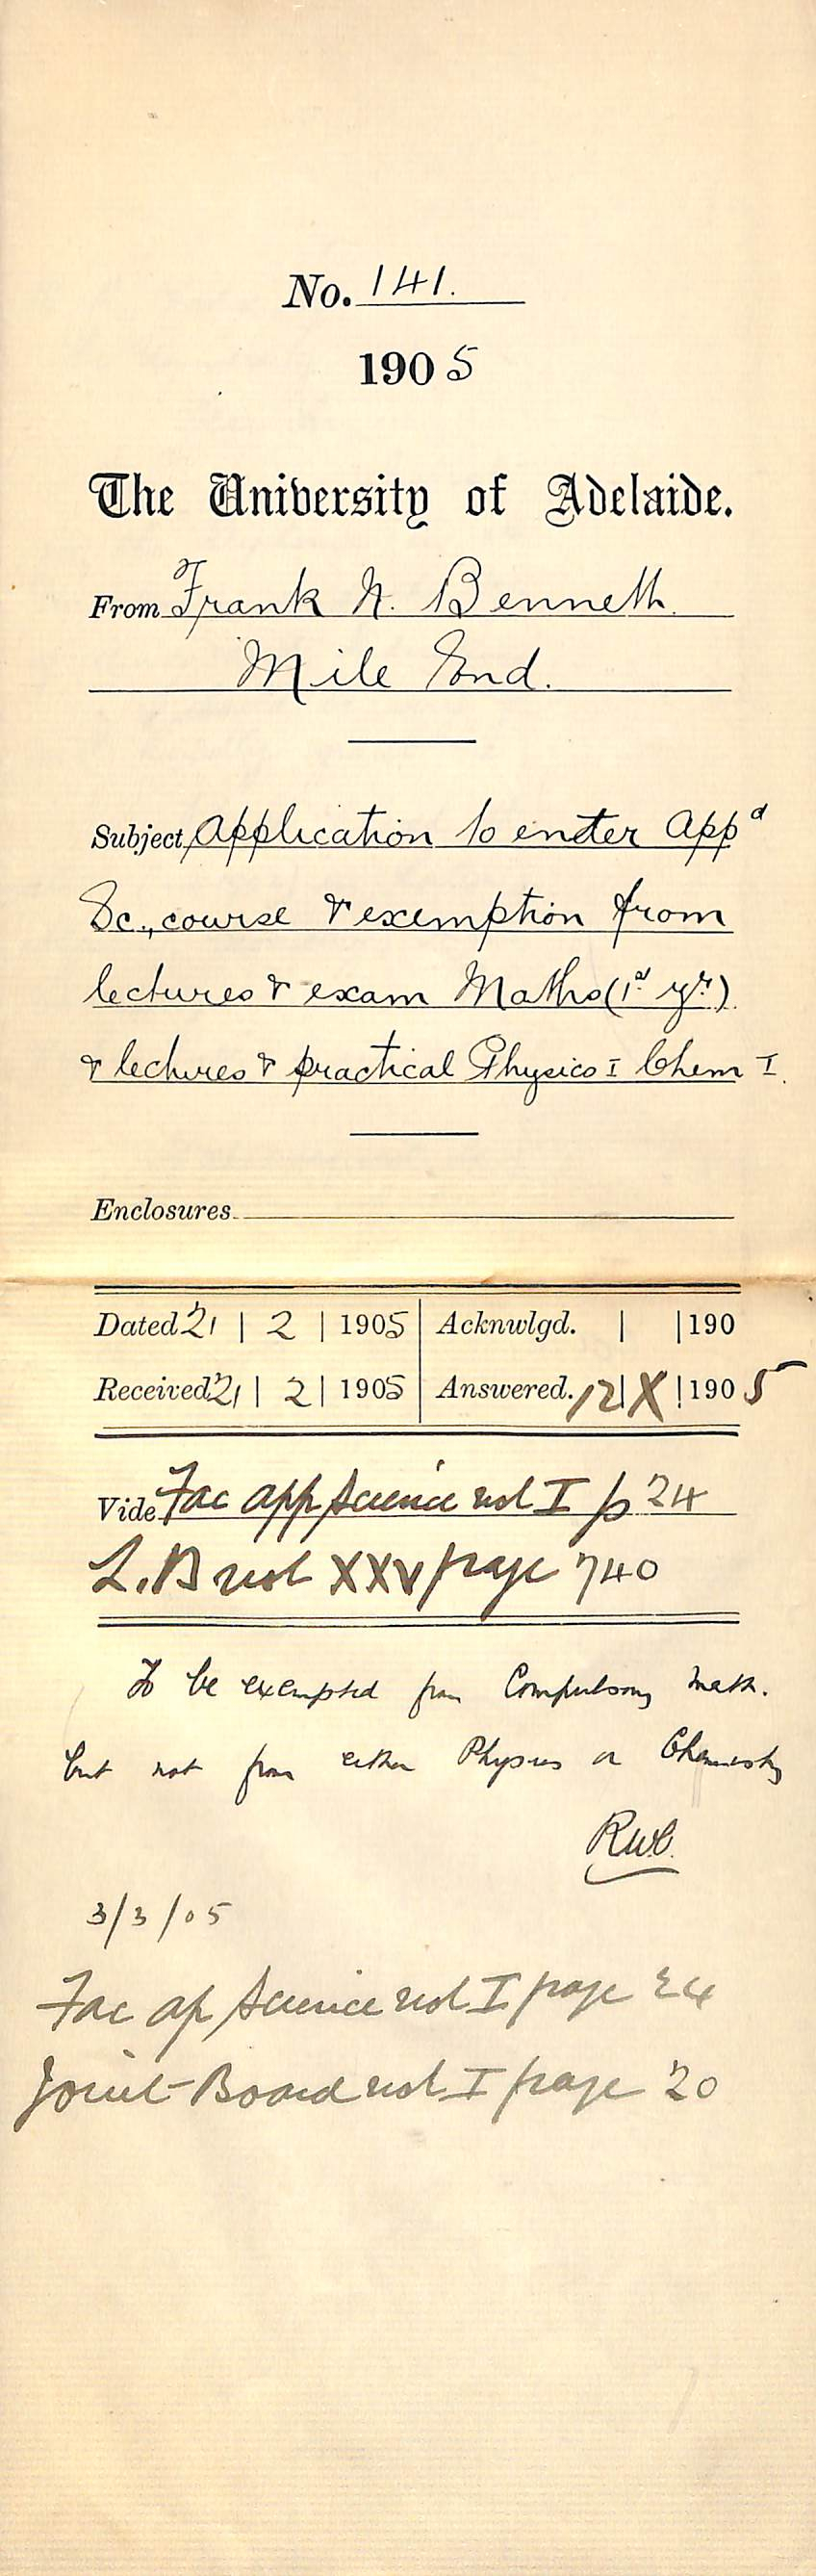 No. 141.
1905
The University of Adelaide.
From Frank N. Bennett.
Mile End.
Subject Application to enter App^d
Sc., course & exemption from
lectures & exam Maths (1st yr.)
& lectures & practical Physics I Chem I.
Enclosures
Dated 21 | 2 | 1905 Acknwlgd. | | 190
Received 21 | 2 | 1905 Answered. 12 | X | 1905
Vide Fac app Science vol I p 24
L. B vol XXV page 740
To be exempted from Compulsory Math.
but not from either Physics or Chemistry
RWC.
3/3/05
Fac ap Science vol I page 24
Joint Board vol I page 20